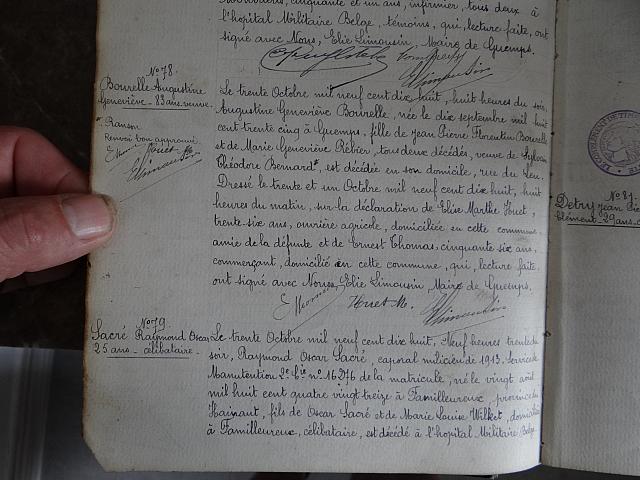 cinquante et un ans, infirmier, tous deux à
l'hôpital Militaire Belge, témoins, qui, lecture faite, ont
signé avec Nous, Elie Limousin, Maire de Guemps.
ELimousin
No 78.
Bourelle Augustine
Geneviève - 83 ans - veuve
Ranson
Renvoi bon approuvé
Le trente Octobre mil neuf cent dix huit, huit heures du soir,
Augustine Geneviève Bourelle, née le dix septembre mil huit
cent trente cinq à Guemps, fille de Jean Pierre Florentin Bourelle
et de Marie Geneviève Rébier, tous deux décédés, veuve de Sylvain
Théodore Bernard, est décédée en son domicile, rue du Leu.
Dressé le trente et un Octobre mil neuf cent dix huit, huit
heures du matin, sur la déclaration de Elise Marthe Houet,
trente-six ans, ouvrière agricole, domiciliée en cette commune
amie de la défunte et de Ernest Thomas, cinquante six ans,
commerçant, domicilié en cette commune, qui, lecture faite,
ont signé avec Nous, Elie Limousin, Maire de Guemps.
EThomas Houet M. ELimousin
No 79.
Sacré Raymond Oscar
25 ans - célibataire.
Le trente Octobre mil neuf cent dix huit, Neuf heures trente du
soir, Raymond Oscar Sacré, caporal milicien de 1913. Service de
Manutention 2e Cie no 16276 de la matricule, né le vingt août
mil huit cent quatre vingt treize à Familleureux, province de
Hainaut, fils de Oscar Sacré et de Marie Louise Wilket, domicilié
à Familleureux, célibataire, est décédé à l'hôpital Militaire Belge
No 81.
Detry Jean
Clément - 29 ans